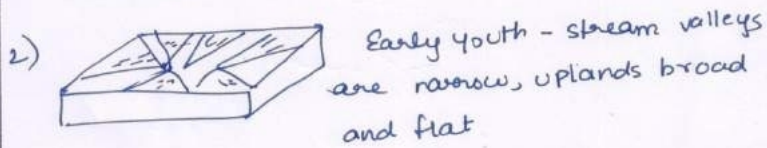 2) Early youth - stream valleys
are narrow, uplands broad
and flat